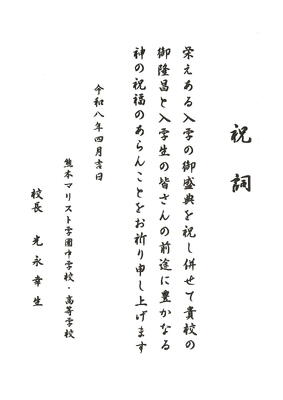 祝詞
栄えある入学の御盛典を祝し併せて貴校の
御隆昌と入学生の皆さんの前途に豊かなる
神の祝福のあらんことをお祈り申し上げます
令和八年四月吉日
熊本マリスト学園中学校・高等学校
校長 光永幸生